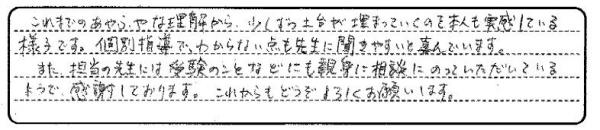 これまでのあやふやな理解から、少しずつ土台が埋まっていくのを本人も実感している
様子です。個別指導で、わからない点も先生に聞きやすいと喜んでいます。
また、担当の先生には受験のことなどにも親身に相談にのっていただいている
ようで、感謝しております。これからもどうぞよろしくお願いします。